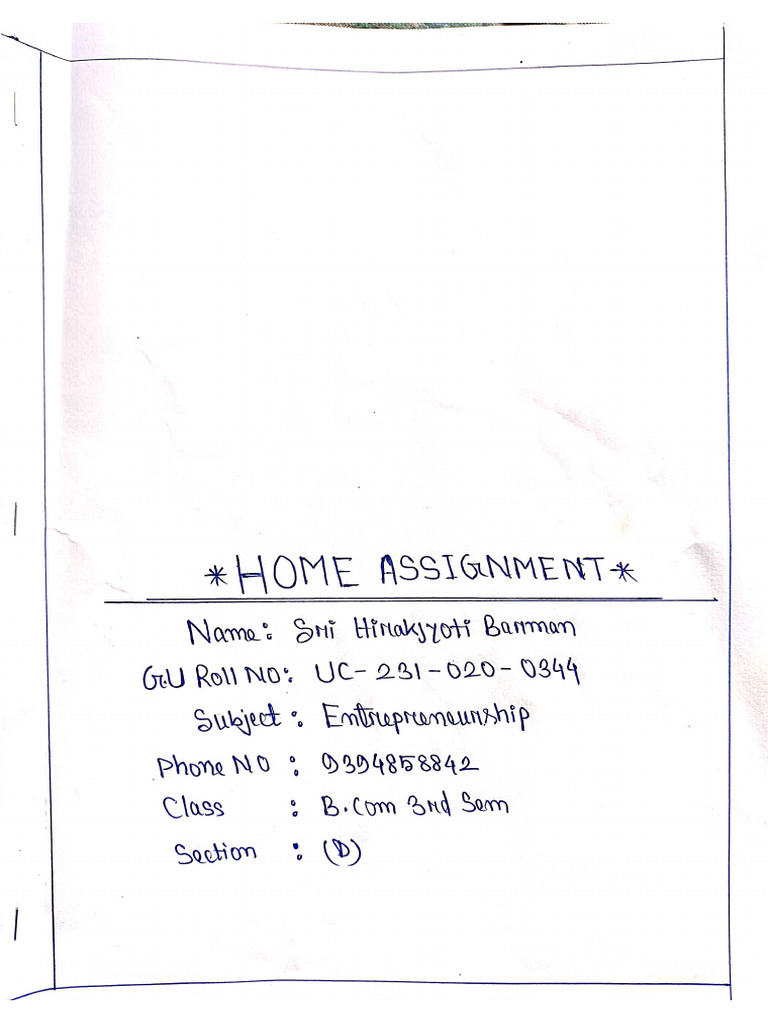 *HOME ASSIGNMENT*
Name: Sri Hirakjyoti Barman
G.U Roll NO: UC-231-020-0344
Subject: Entrepreneurship
Phone NO : 9394858842
Class : B.Com 3rd Sem
Section : (D)